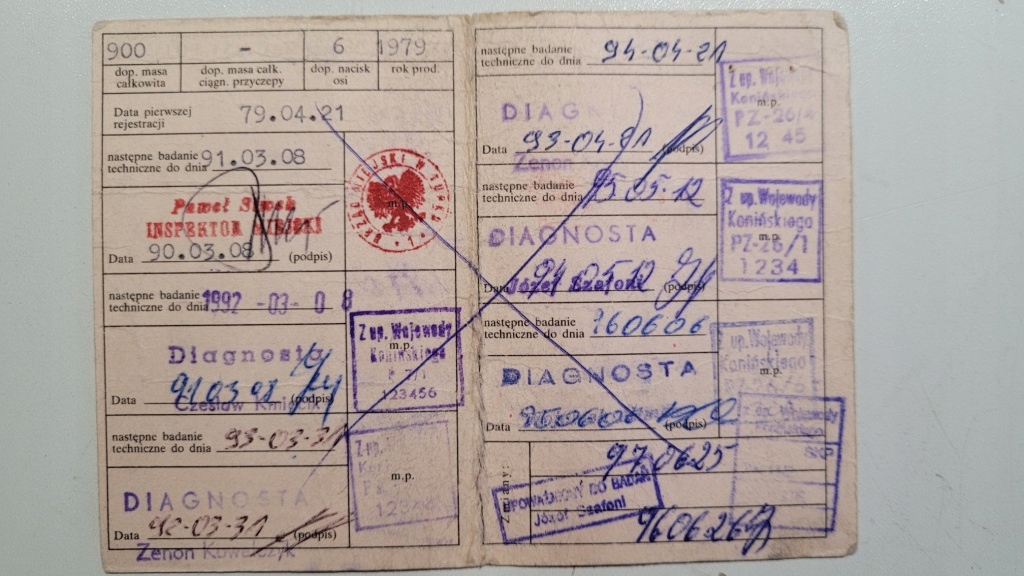 900 - 6 1979
dop. masa całkowita
dop. masa całk. ciągn. przyczepy
dop. nacisk osi
rok prod.
Data pierwszej rejestracji 79.04.21
następne badanie techniczne do dnia 91.03.08
Paweł
INSPEKTOR
Data 90.03.08 (podpis)
m.p.
następne badanie techniczne do dnia 1992 -03- 0 8
Z up. Wojewody
Konińskiego
m.p.
123456
Diagnosta
Data 91 03 08 (podpis)
Czesław
następne badanie techniczne do dnia 93-03-31
m.p.
DIAGNOSTA
Data 92-03-31 (podpis)
Zenon Kowalczyk
następne badanie techniczne do dnia 94-04-21
Z up. Wojewody
m.p.
PZ-26/
12 45
DIAGN
Data 93-04-21 (podpis)
Zenon
następne badanie techniczne do dnia 95 05 12
Z up. Wojewody
Konińskiego
m.p.
PZ-26/1
1234
DIAGNOSTA
Data 94 05 12 (podpis)
Józef Szafoni
następne badanie techniczne do dnia 960606
Z up. Wojewody
Konińskiego
m.p.
DIAGNOSTA
Data 950606 (podpis)
Z up. Wojewody
SKP
97.06.25
UPOWAŻNIONY DO BADAŃ
Józef Szafoni
960626